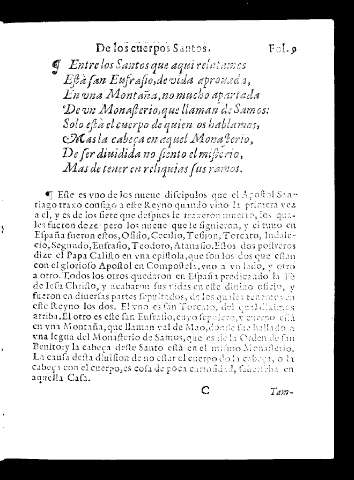 De los cuerpos Santos. Fol. 9
¶ Entre los Santos que aqui relatamos
Està san Eufrasio, de vida aprouada,
En vna Montaña, no mucho apartada
De vn Monasterio, que llaman de Samos:
Solo està el cuerpo de quien os hablamos,
Mas la cabeça en aquel Monasterio,
De ser diuidida no siento el misterio,
Mas de tener en reliquias sus ramos.
¶ Este es vno de los nueue discipulos que el Apostol San-
tiago traxo consigo a este Reyno quando vino la primera vez
a el, y es de los siete que despues le truxeron muerto, los qua-
les fueron doze pero los nueue que le siguieron, y el tuuo en
España fueron estos, Cecilio, Tesifon, Torcato, Indale-
cio, Segundo, Eufrasio, Teodoro, Atanasio. Estos dos postreros
dize el Papa Calisto en vna epistola, que son los dos que estan
con el glorioso Apostol en Compostela, vno a vn lado, y otro
a otro. Todos los otros quedaron en España predicando la Fè
de Iesu Christo, y acabaron sus vidas en este diuino oficio, y
fueron en diuersas partes sepultados, de los quales tenemos en
este Reyno los dos. El vno es san Torcato, del qual diximos
arriba. El otro es este san Eufrasio, cuyo sepulcro, y cuerpo està
en vna Montaña, que llaman val de Mao, donde fue hallado a
vna legua del Monasterio de Samos, que es de la Orden de san
Benito: y la cabeça deste Santo està en el mismo Monasterio.
La causa desta diuision de no estar el cuerpo do la cabeça, o la
cabeça con el cuerpo, es cosa de poca curiosidad, sauerlha en
aquella Casa.
C Tam-